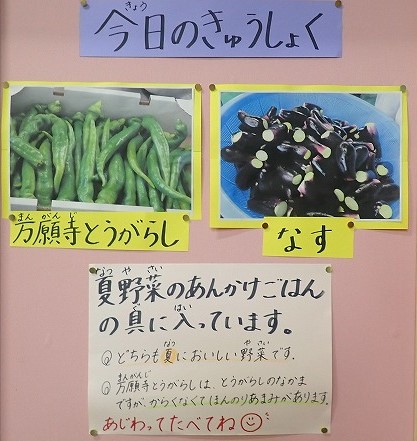 今日のきゅうしょく
万願寺とうがらし
なす
夏野菜のあんかけごはん
の具に入っています。
どちらも夏においしい野菜です。
万願寺とうがらしは、とうがらしのなかま
ですが、からくなくてほんのりあまみがあります。
あじわってたべてね